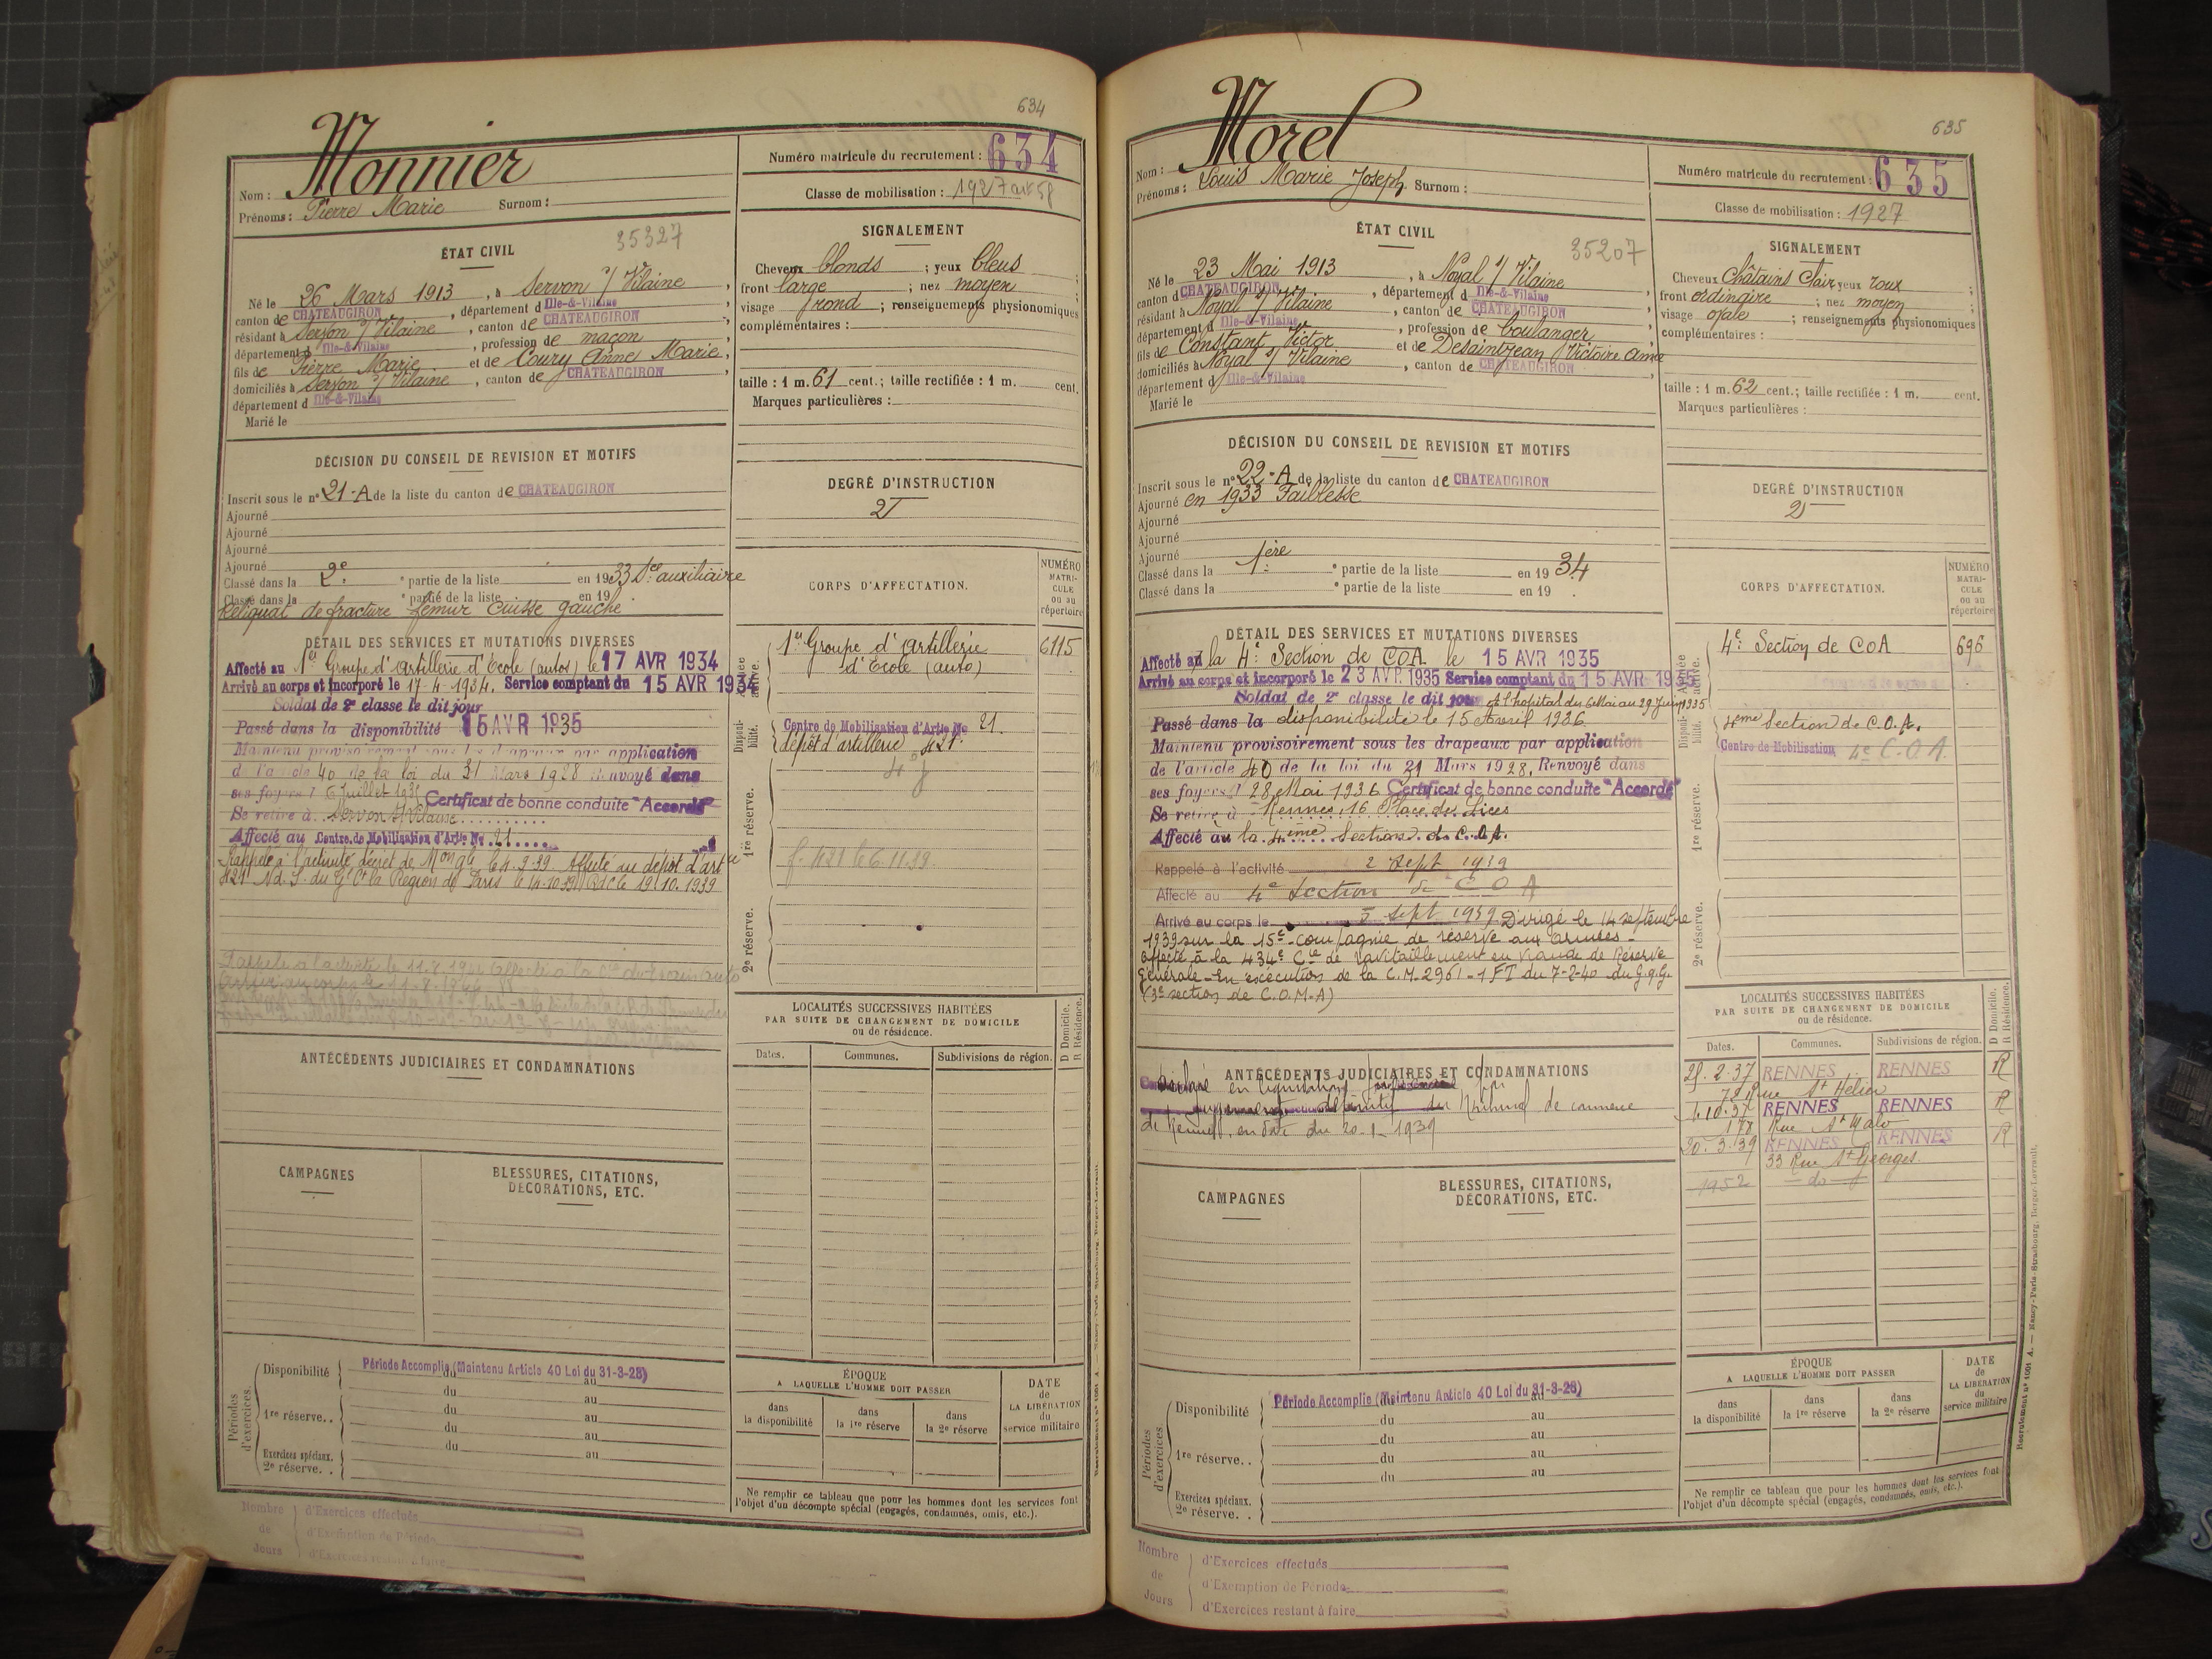 634
Monnier
Nom :
Prénoms : Pierre Marie Surnom :
Numéro matricule du recrutement : 634
Classe de mobilisation : 1927 art 58
ÉTAT CIVIL
35327
Né le 26 Mars 1913, à Servon s/ Vilaine,
canton de CHATEAUGIRON, département d Ille-&-Vilaine,
résidant à Servon s/ Vilaine, canton de CHATEAUGIRON,
département d Ille-&-Vilaine, profession de maçon,
fils de Pierre Marie et de Coury Anne Marie,
domiciliés à Servon s/ Vilaine, canton de CHATEAUGIRON,
département d Ille-&-Vilaine
Marié le
SIGNALEMENT
Cheveux blonds ; yeux bleus ;
front large ; nez moyen ;
visage rond ; renseignements physionomiques
complémentaires :
taille : 1 m. 61 cent.; taille rectifiée : 1 m. cent.
Marques particulières :
DÉCISION DU CONSEIL DE REVISION ET MOTIFS
Inscrit sous le n° 21-A de la liste du canton de CHATEAUGIRON
Ajourné
Ajourné
Ajourné
Ajourné
Classé dans la 2e ° partie de la liste en 1933 Sce auxiliaire
Classé dans la ° partie de la liste en 19
Reliquat de fracture fémur cuisse gauche
DEGRÉ D'INSTRUCTION
2
DÉTAIL DES SERVICES ET MUTATIONS DIVERSES
Affecté au 1er Groupe d'Artillerie d'Ecole (autos) le 17 AVR 1934
Arrivé au corps et incorporé le 17-4-1934. Service comptant du 15 AVR 1934
Soldat de 2e classe le dit jour
Passé dans la disponibilité 15 AVR 1935
Maintenu provisoirement sous les drapeaux par application
de l'article 40 de la loi du 31 Mars 1928 Renvoyé dans
ses foyers l 6 Juillet 1935 Certificat de bonne conduite "Accordé"
Se retire à Servon s/ Vilaine
Affecté au Centre de Mobilisation d'Artie No 21
Rappelé à l'activité Décret de Mon gle le 4-9-39 Affecté au dépôt d'art ie
421 Nd. S. du Gl Ct la Région de Paris le 14-10-39 RdC le 19.10.1939
CORPS D'AFFECTATION.
NUMÉRO MATRI-CULE ou au répertoire
Armée active.
1er Groupe d'Artillerie 6115
d'Ecole (auto)
Disponi-bilité.
Centre de Mobilisation d'Artie No 21.
dépôt d'artillerie 421.
1re réserve.
f. 421 le 6.11.39.
2e réserve.
ANTÉCÉDENTS JUDICIAIRES ET CONDAMNATIONS
LOCALITÉS SUCCESSIVES HABITÉES
PAR SUITE DE CHANGEMENT DE DOMICILE
ou de résidence.
D Domicile.
R Résidence.
Dates. Communes. Subdivisions de région.
CAMPAGNES
BLESSURES, CITATIONS,
DÉCORATIONS, ETC.
Périodes d'exercices.
Disponibilité
Période Accomplie (Maintenu Article 40 Loi du 31-3-28)
du au
du au
1re réserve.. du au
du au
du au
Exercices spéciaux.
2e réserve. .
ÉPOQUE
A LAQUELLE L'HOMME DOIT PASSER
dans la disponibilité
dans la 1re réserve
dans la 2e réserve
DATE de LA LIBÉRATION du service militaire
Ne remplir ce tableau que pour les hommes dont les services font
l'objet d'un décompte spécial (engagés, condamnés, omis, etc.).
Nombre de Jours
d'Exercices effectués
d'Exemption de Période
d'Exercices restant à faire
635
Morel
Nom :
Prénoms : Louis Marie Joseph Surnom :
Numéro matricule du recrutement : 635
Classe de mobilisation : 1927
ÉTAT CIVIL
35207
Né le 23 Mai 1913, à Noyal s/ Vilaine,
canton d CHATEAUGIRON, département d Ille-&-Vilaine,
résidant à Noyal s/ Vilaine, canton de CHATEAUGIRON,
département d Ille-&-Vilaine, profession de boulanger,
fils de Constant Victor et de Desaintjean Victoire Amée
domiciliés à Noyal s/ Vilaine, canton de CHATEAUGIRON,
département d Ille-&-Vilaine
Marié le
SIGNALEMENT
Cheveux Châtains Clair yeux roux ;
front ordinaire ; nez moyen ;
visage ovale ; renseignements physionomiques
complémentaires :
taille : 1 m. 62 cent.; taille rectifiée : 1 m. cent.
Marques particulières :
DÉCISION DU CONSEIL DE REVISION ET MOTIFS
Inscrit sous le n° 22-A de la liste du canton de CHATEAUGIRON
Ajourné en 1933 Faiblesse
Ajourné
Ajourné
Ajourné
Classé dans la 1ère ° partie de la liste en 1934
Classé dans la ° partie de la liste en 19
DEGRÉ D'INSTRUCTION
2
DÉTAIL DES SERVICES ET MUTATIONS DIVERSES
Affecté au la 4e Section de COA le 15 AVR 1935
Arrivé au corps et incorporé le 23 AVR 1935 Service comptant du 15 AVR 1935
Soldat de 2e classe le dit jour A l'hopital du 6 Mai au 29 Juin 1935
Passé dans la disponibilité le 15 Avril 1936
Maintenu provisoirement sous les drapeaux par application
de l'article 40 de la loi du 31 Mars 1928, Renvoyé dans
ses foyers l 28 Mai 1936 Certificat de bonne conduite "Accordé"
Se retire à Rennes, 16 Place des Lices
Affecté au la 4eme Section de C.O.A.
Rappelé à l'activité 2 Sept 1939
Affecté au 4e Section de C O A
Arrivé au corps le 3 Sept 1939 Dirigé le 14 septembre
1939 sur la 15e Compagnie de réserve aux Armées -
Affecté à la 434e Cie de ravitaillement en viande de Réserve
Générale - En exécution de la C.M. 2961 - 1 FT du 7-2-40 du G.Q.G.
(3e section de C.O.M.A)
CORPS D'AFFECTATION.
NUMÉRO MATRI-CULE ou au répertoire
Armée active.
4e Section de COA 696
Disponi-bilité.
4eme Section de C.O.A.
Centre de Mobilisation 4e C.O.A.
1re réserve.
2e réserve.
ANTÉCÉDENTS JUDICIAIRES ET CONDAMNATIONS
Déclaré en liquidation par
jugement définitif du tribunal de commerce
de Rennes, en date du 20-1-1939
LOCALITÉS SUCCESSIVES HABITÉES
PAR SUITE DE CHANGEMENT DE DOMICILE
ou de résidence.
D Domicile.
R Résidence.
Dates. Communes. Subdivisions de région.
25.2.37 RENNES RENNES R
72 Rue St Hélier
4.10.37 RENNES RENNES R
178 Rue St Malo
20.3.39 RENNES RENNES R
33 Rue St Georges.
1952 - do -
CAMPAGNES
BLESSURES, CITATIONS,
DÉCORATIONS, ETC.
Périodes d'exercices
Disponibilité
Période Accomplie (Maintenu Article 40 Loi du 31-3-28)
du au
du au
1re réserve.. du au
du au
Exercices spéciaux.
2e réserve. .
ÉPOQUE
A LAQUELLE L'HOMME DOIT PASSER
dans la disponibilité
dans la 1re réserve
dans la 2e réserve
DATE de LA LIBÉRATION du service militaire
Ne remplir ce tableau que pour les hommes dont les services font
l'objet d'un décompte spécial (engagés, condamnés, omis, etc.).
Recrutement n° 1001 A. — Nancy-Paris-Strasbourg, Berger-Levrault.
Nombre de Jours
d'Exercices effectués
d'Exemption de Période
d'Exercices restant à faire